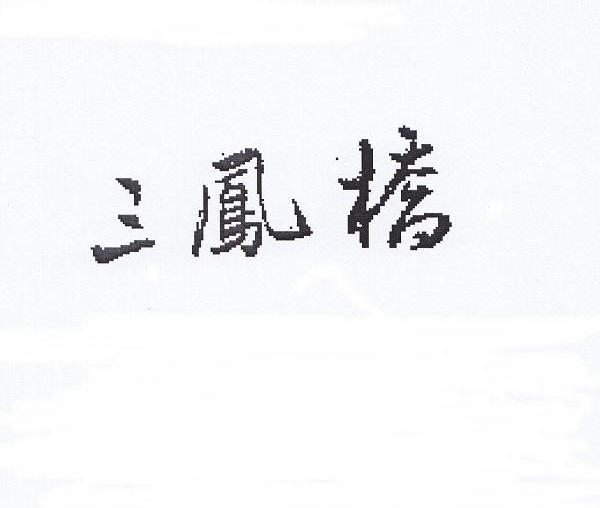 三鳳橋